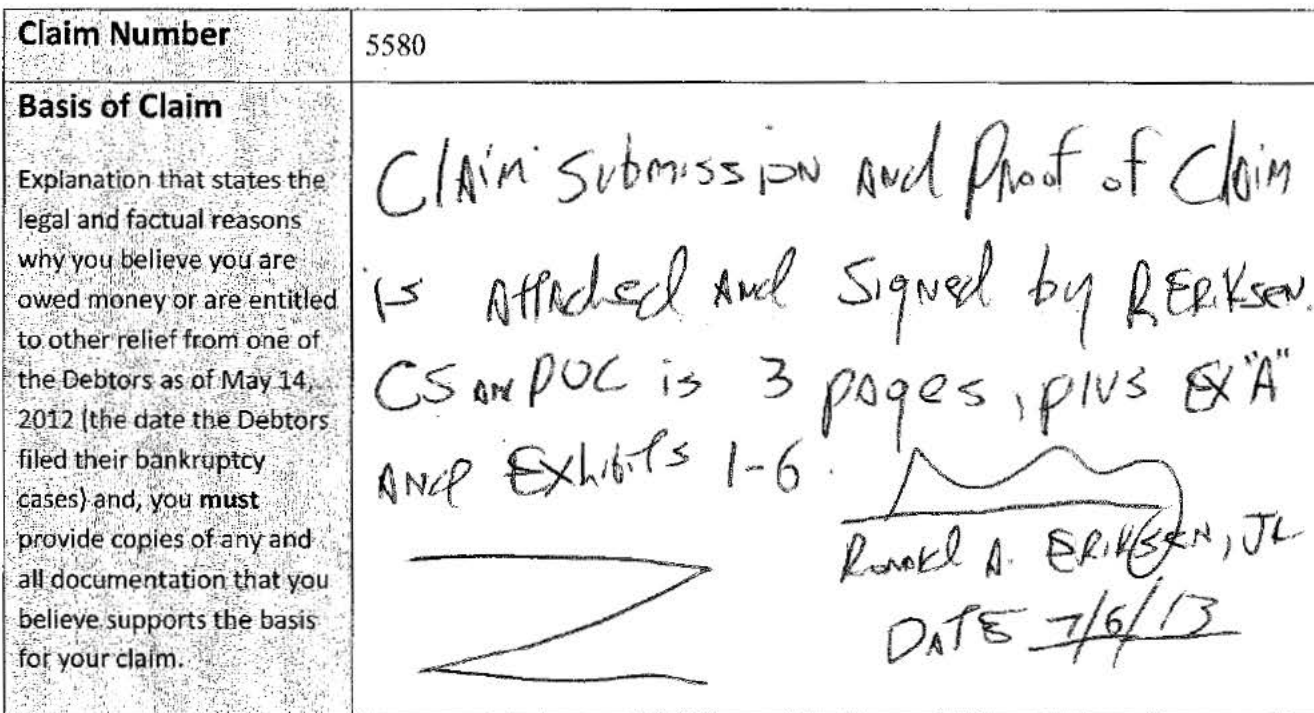 Claim Number
5580
Basis of Claim
Explanation that states the
legal and factual reasons
why you believe you are
owed money or are entitled
to other relief from one of
the Debtors as of May 14,
2012 (the date the Debtors
filed their bankruptcy
cases) and, you must
provide copies of any and
all documentation that you
believe supports the basis
for your claim.
Claim Submission and Proof of Claim
is Attached and Signed by R ERiKsen.
CS and POC is 3 pages, plus EX "A"
and Exhibits 1-6.
Ronald A. ERiKSEN, JR
DATE 7/6/13